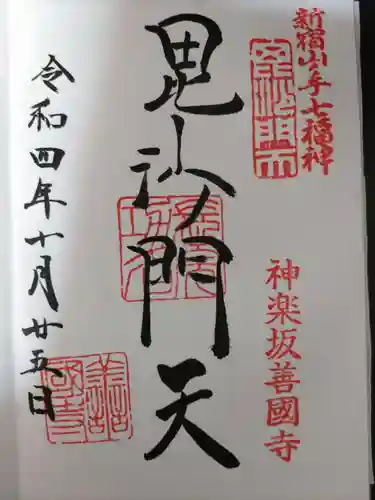 新宿山ノ手七福神
毘沙門天
神楽坂善國寺
令和四年十月廿五日